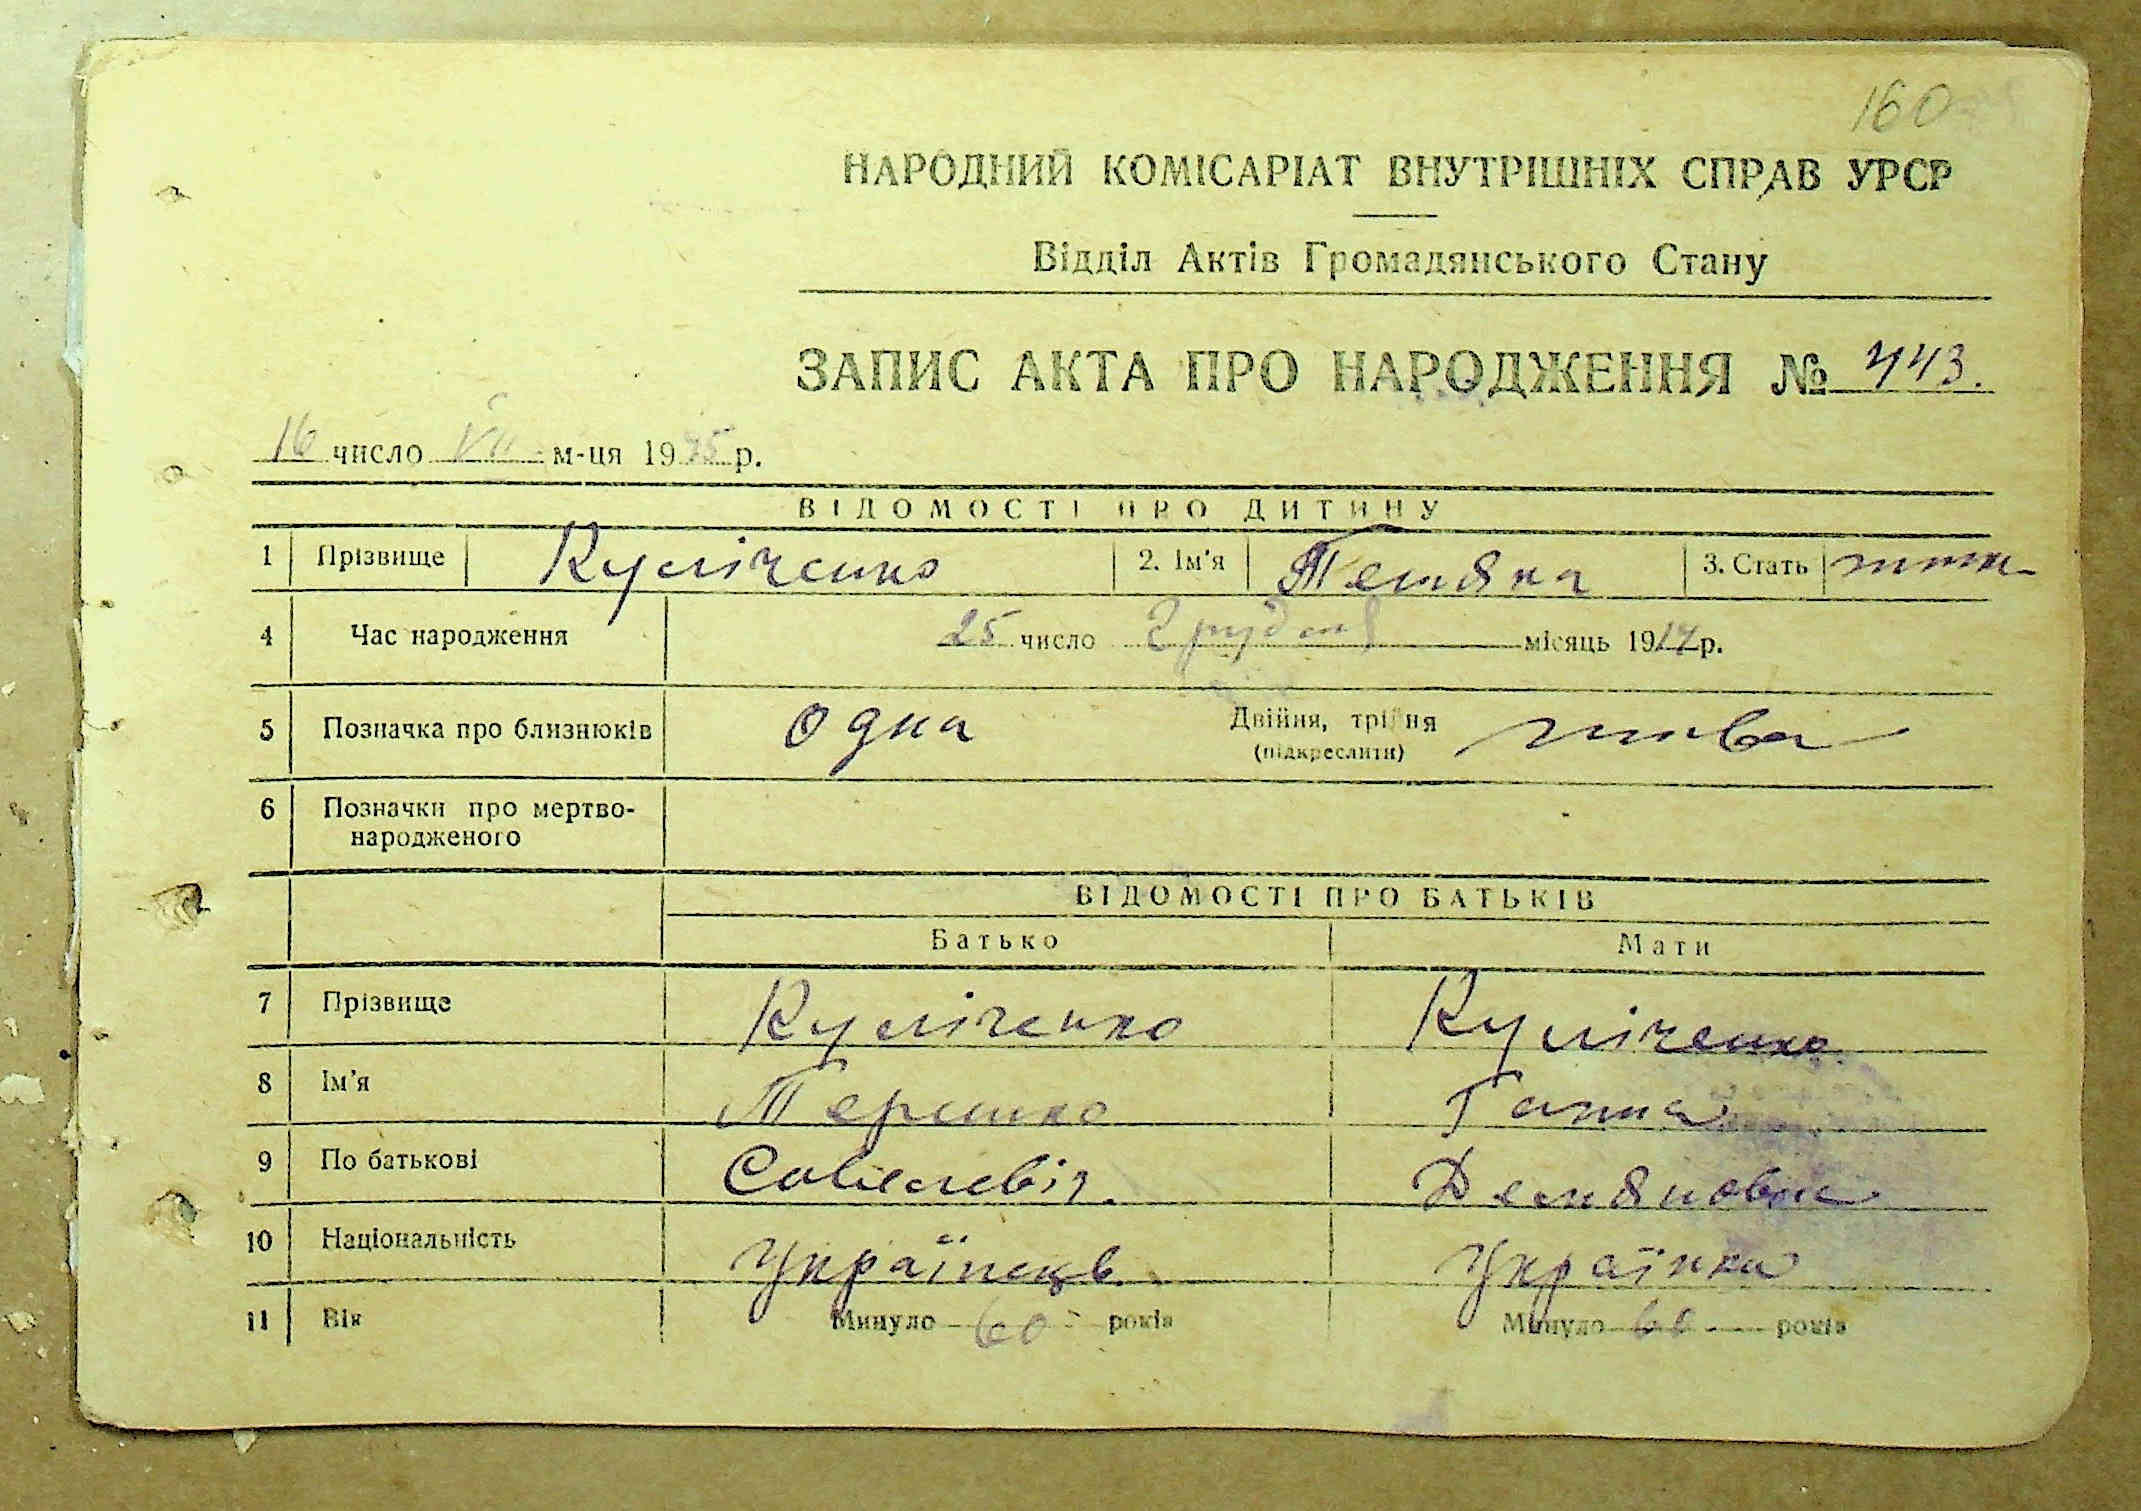 160
НАРОДНИЙ КОМІСАРІАТ ВНУТРІШНІХ СПРАВ УРСР
Відділ Актів Громадянського Стану
ЗАПИС АКТА ПРО НАРОДЖЕННЯ № 443.
16 число VII м-ця 1945 р.
ВІДОМОСТІ ПРО ДИТИНУ
1 Прізвище Куліченко 2. Ім'я Тетяна 3. Стать
4 Час народження 25 число Грудня місяць 1917 р.
5 Позначка про близнюків одна Двійня, трійня (підкреслити) жива
6 Позначки про мертво-
народженого
ВІДОМОСТІ ПРО БАТЬКІВ
Батько Мати
7 Прізвище Куліченко Куліченко
8 Ім'я Терешко Ганна
9 По батькові Савелевіч. Демяновна
10 Національність Українець Українка
11 Вік Минуло 60 років Минуло 60 років